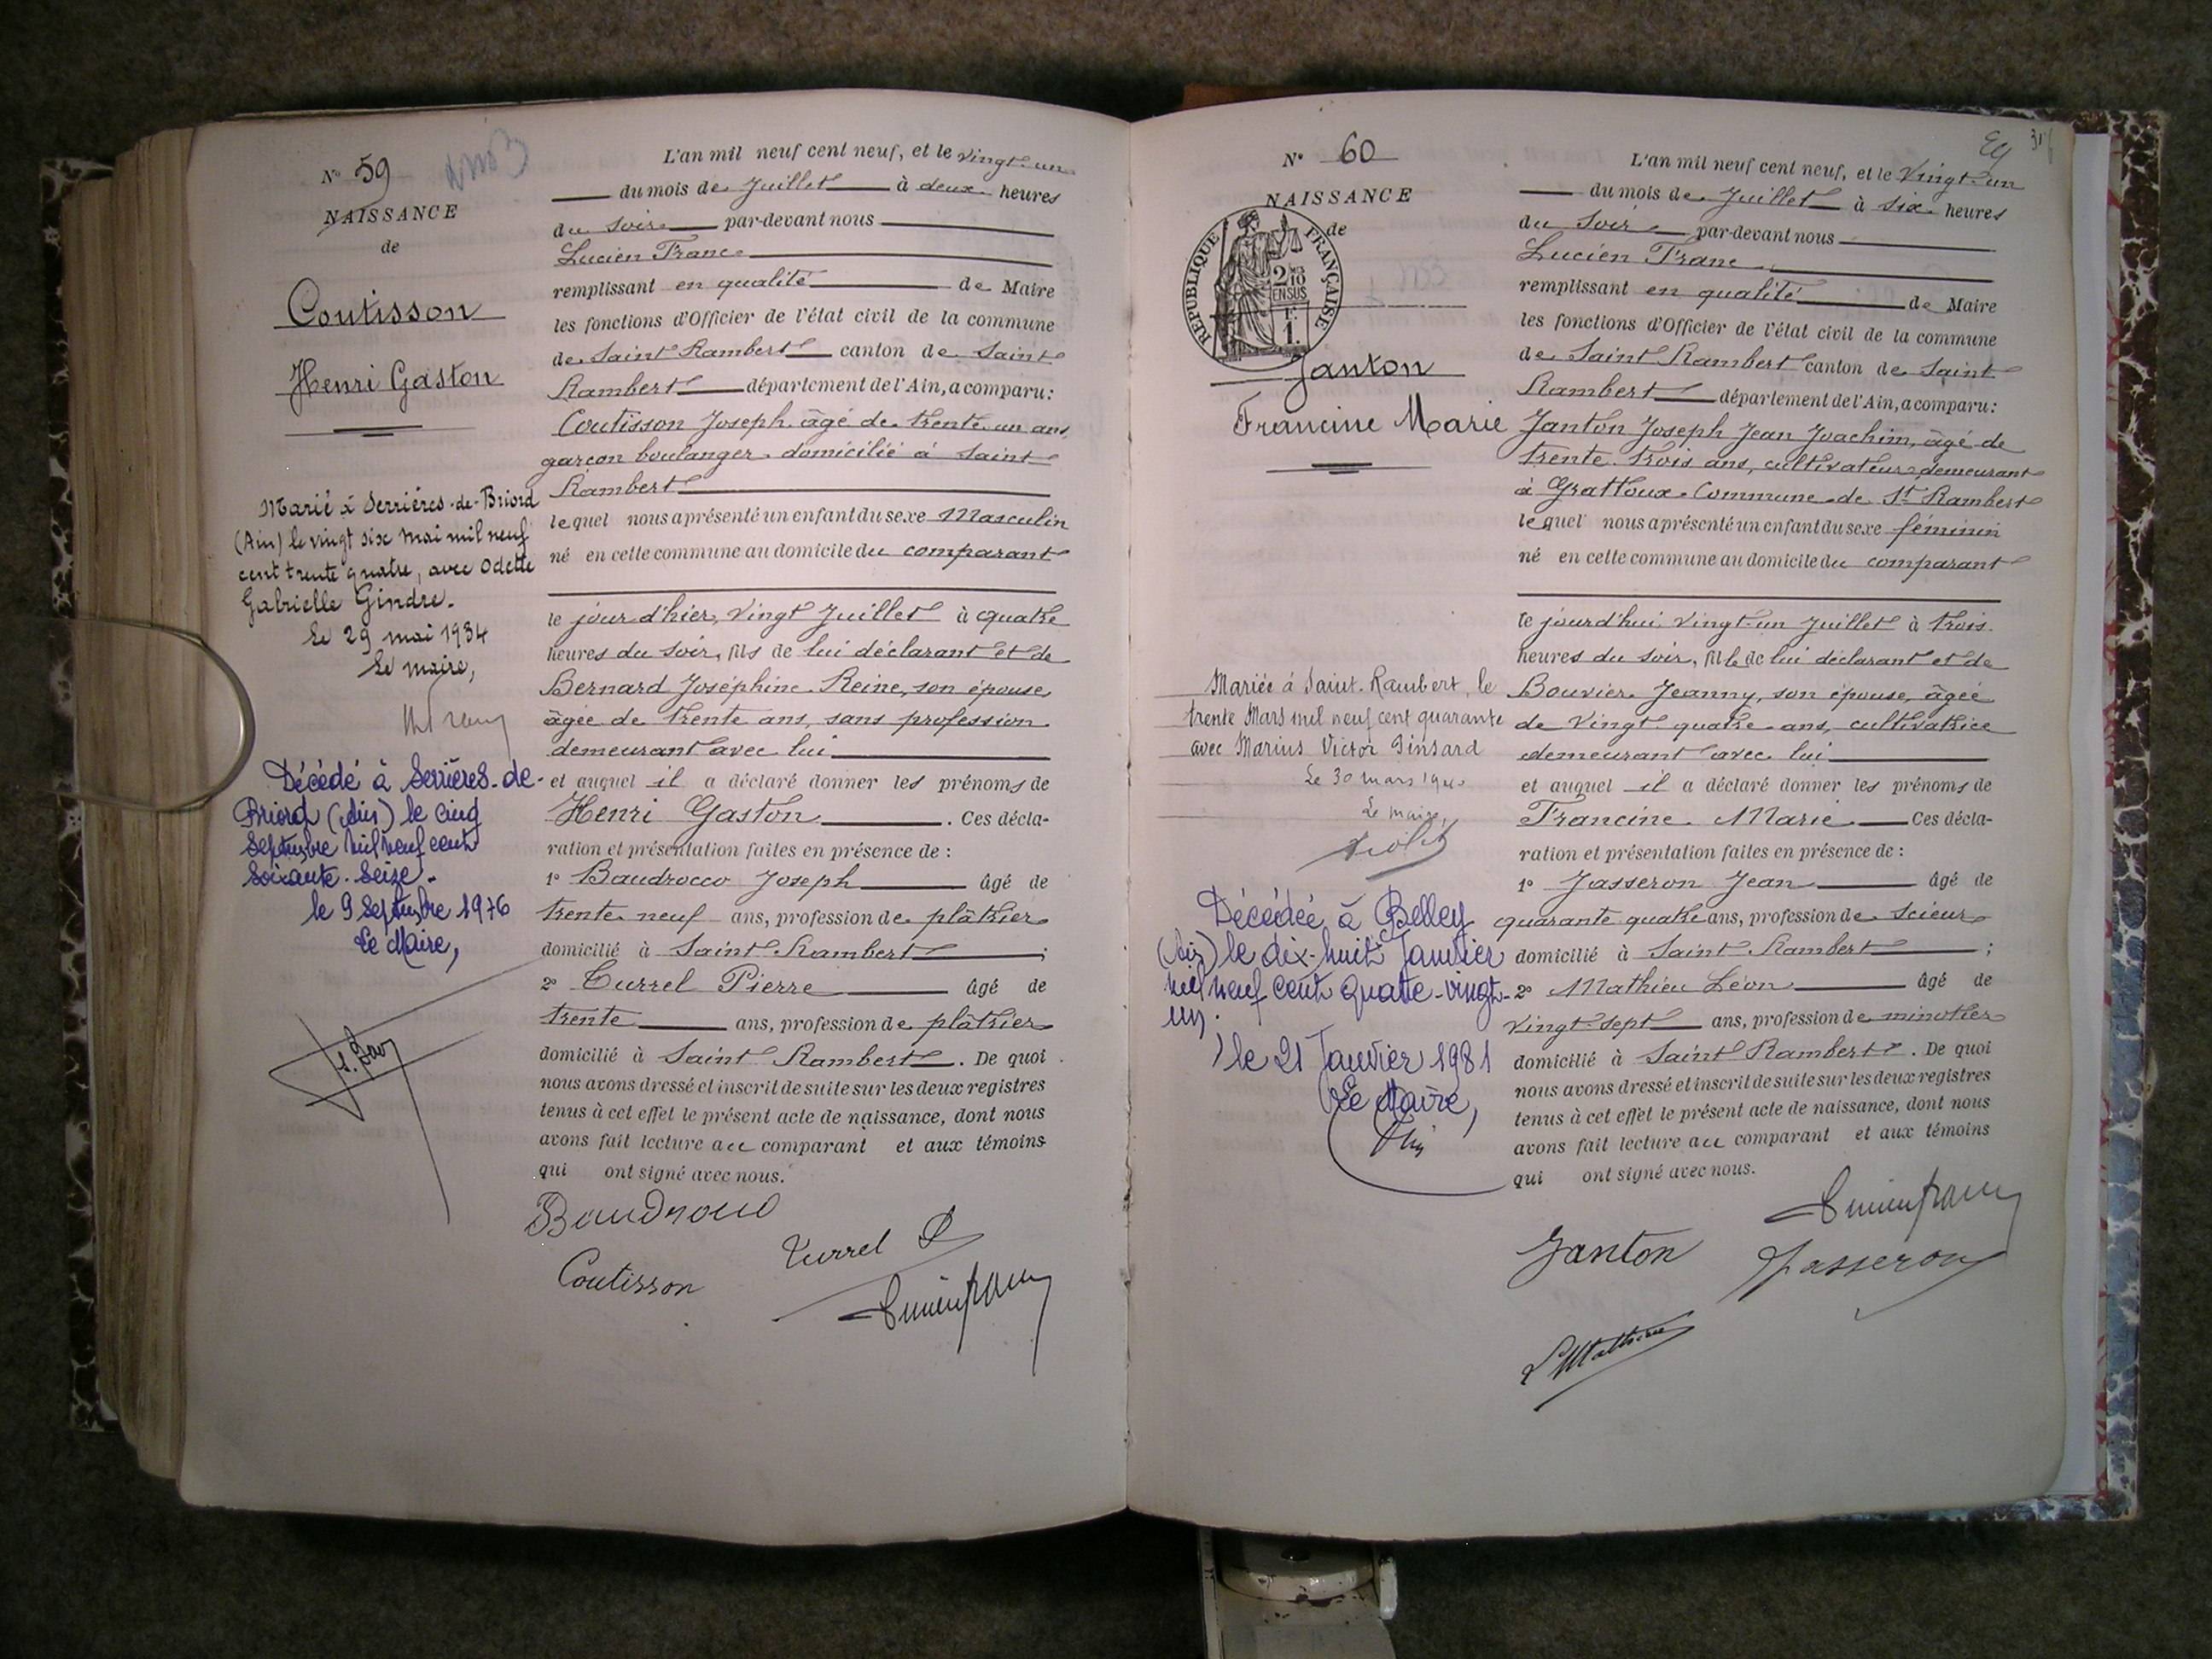 N° 59
NAISSANCE
de
Coutisson
Henri Gaston
Marié à Serrières-de-Briord
(Ain) le vingt six mai mil neuf
cent trente quatre, avec Odette
Gabrielle Gindre.
Le 29 mai 1934
Le maire,
Décédé à Serrières-de-
Briord (Ain) le cinq
Septembre mil neuf cent
Soixante-Seize.
le 9 Septembre 1976
Le Maire,
L'an mil neuf cent neuf, et le vingt-un
du mois de Juillet à deux heures
du soir par-devant nous
Lucien Franc
remplissant en qualité de Maire
les fonctions d'Officier de l'état civil de la commune
de Saint Rambert canton de Saint
Rambert département de l'Ain, a comparu:
Coutisson Joseph âgé de trente un ans,
garçon boulanger domicilié à Saint
Rambert
lequel nous a présenté un enfant du sexe Masculin
né en cette commune au domicile du comparant
le jour d'hier, vingt Juillet à quatre
heures du soir, fils de lui déclarant et de
Bernard Joséphine Reine, son épouse,
âgée de trente ans, sans profession
demeurant avec lui
et auquel il a déclaré donner les prénoms de
Henri Gaston. Ces décla-
ration et présentation faites en présence de :
1° Baudrocco Joseph âgé de
trente neuf ans, profession de plâtrier
domicilié à Saint Rambert ;
2° Turrel Pierre âgé de
trente ans, profession de plâtrier
domicilié à Saint Rambert. De quoi
nous avons dressé et inscrit de suite sur les deux registres
tenus à cet effet le présent acte de naissance, dont nous
avons fait lecture au comparant et aux témoins
qui ont signé avec nous.
Turrel P
Coutisson
N° 60
NAISSANCE
de
REPUBLIQUE FRANÇAISE
2/10
EN SUS
1.
Janton
Francine Marie
Mariée à Saint-Rambert, le
trente Mars mil neuf cent quarante
avec Marius Victor Ginsard
Le 30 mars 1940
Le maire,
Décédée à Belley
(Ain) le dix-huit Janvier
mil neuf cent quatre-vingt-
un.
le 21 Janvier 1981
Le Maire,
L'an mil neuf cent neuf, et le Vingt-un
du mois de Juillet à six heures
du soir par-devant nous
Lucien Franc
remplissant en qualité de Maire
les fonctions d'Officier de l'état civil de la commune
de Saint Rambert canton de Saint
Rambert département de l'Ain, a comparu:
Janton Joseph Jean Joachim, âgé de
trente-trois ans, cultivateur demeurant
à Grattoux Commune de St Rambert
lequel nous a présenté un enfant du sexe féminin
né en cette commune au domicile du comparant
le jourd'hui vingt-un Juillet à trois
heures du soir, fille de lui déclarant et de
Bouvier Jeanny, son épouse, âgée
de vingt quatre ans, cultivatrice
demeurant avec lui
et auquel il a déclaré donner les prénoms de
Francine Marie Ces décla-
ration et présentation faites en présence de :
1° Jasseron Jean âgé de
quarante quatre ans, profession de scieur
domicilié à Saint Rambert ;
2° Mathieu Léon âgé de
vingt-sept ans, profession de minotier
domicilié à Saint Rambert. De quoi
nous avons dressé et inscrit de suite sur les deux registres
tenus à cet effet le présent acte de naissance, dont nous
avons fait lecture au comparant et aux témoins
qui ont signé avec nous.
Janton
Jasseron
L Mathieu